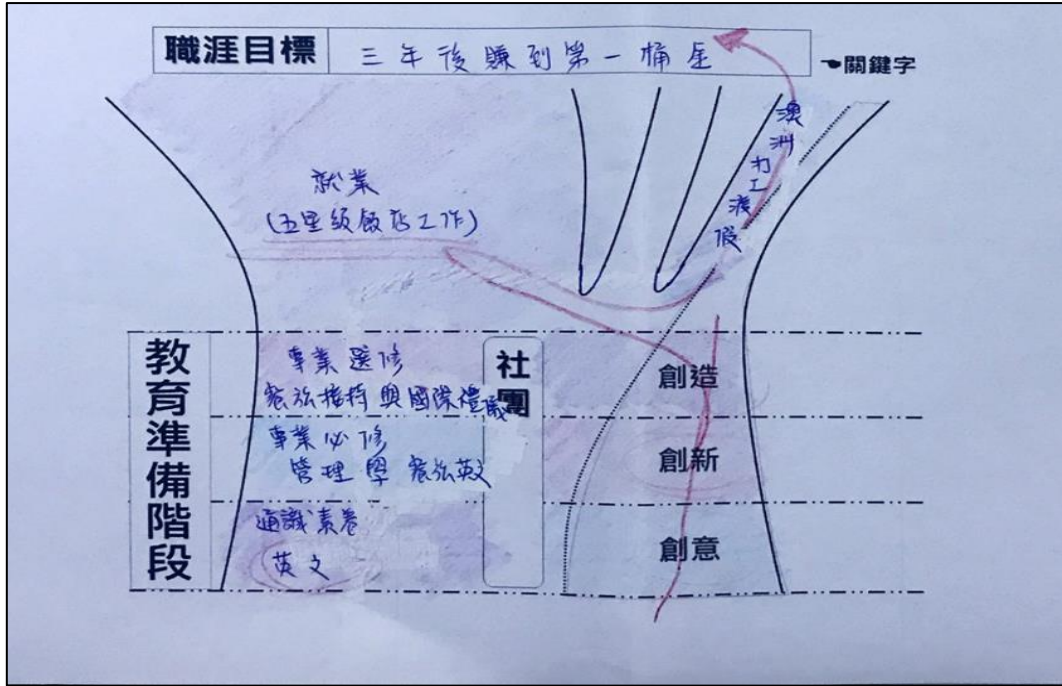 職涯目標 三年後賺到第一桶金
☚關鍵字
澳洲打工渡假
就業
(五星級飯店工作)
教育準備階段
專業選修
餐旅接待與國際禮儀
社團
創造
專業必修
管理學 餐旅英文
創新
通識素養
英文
創意